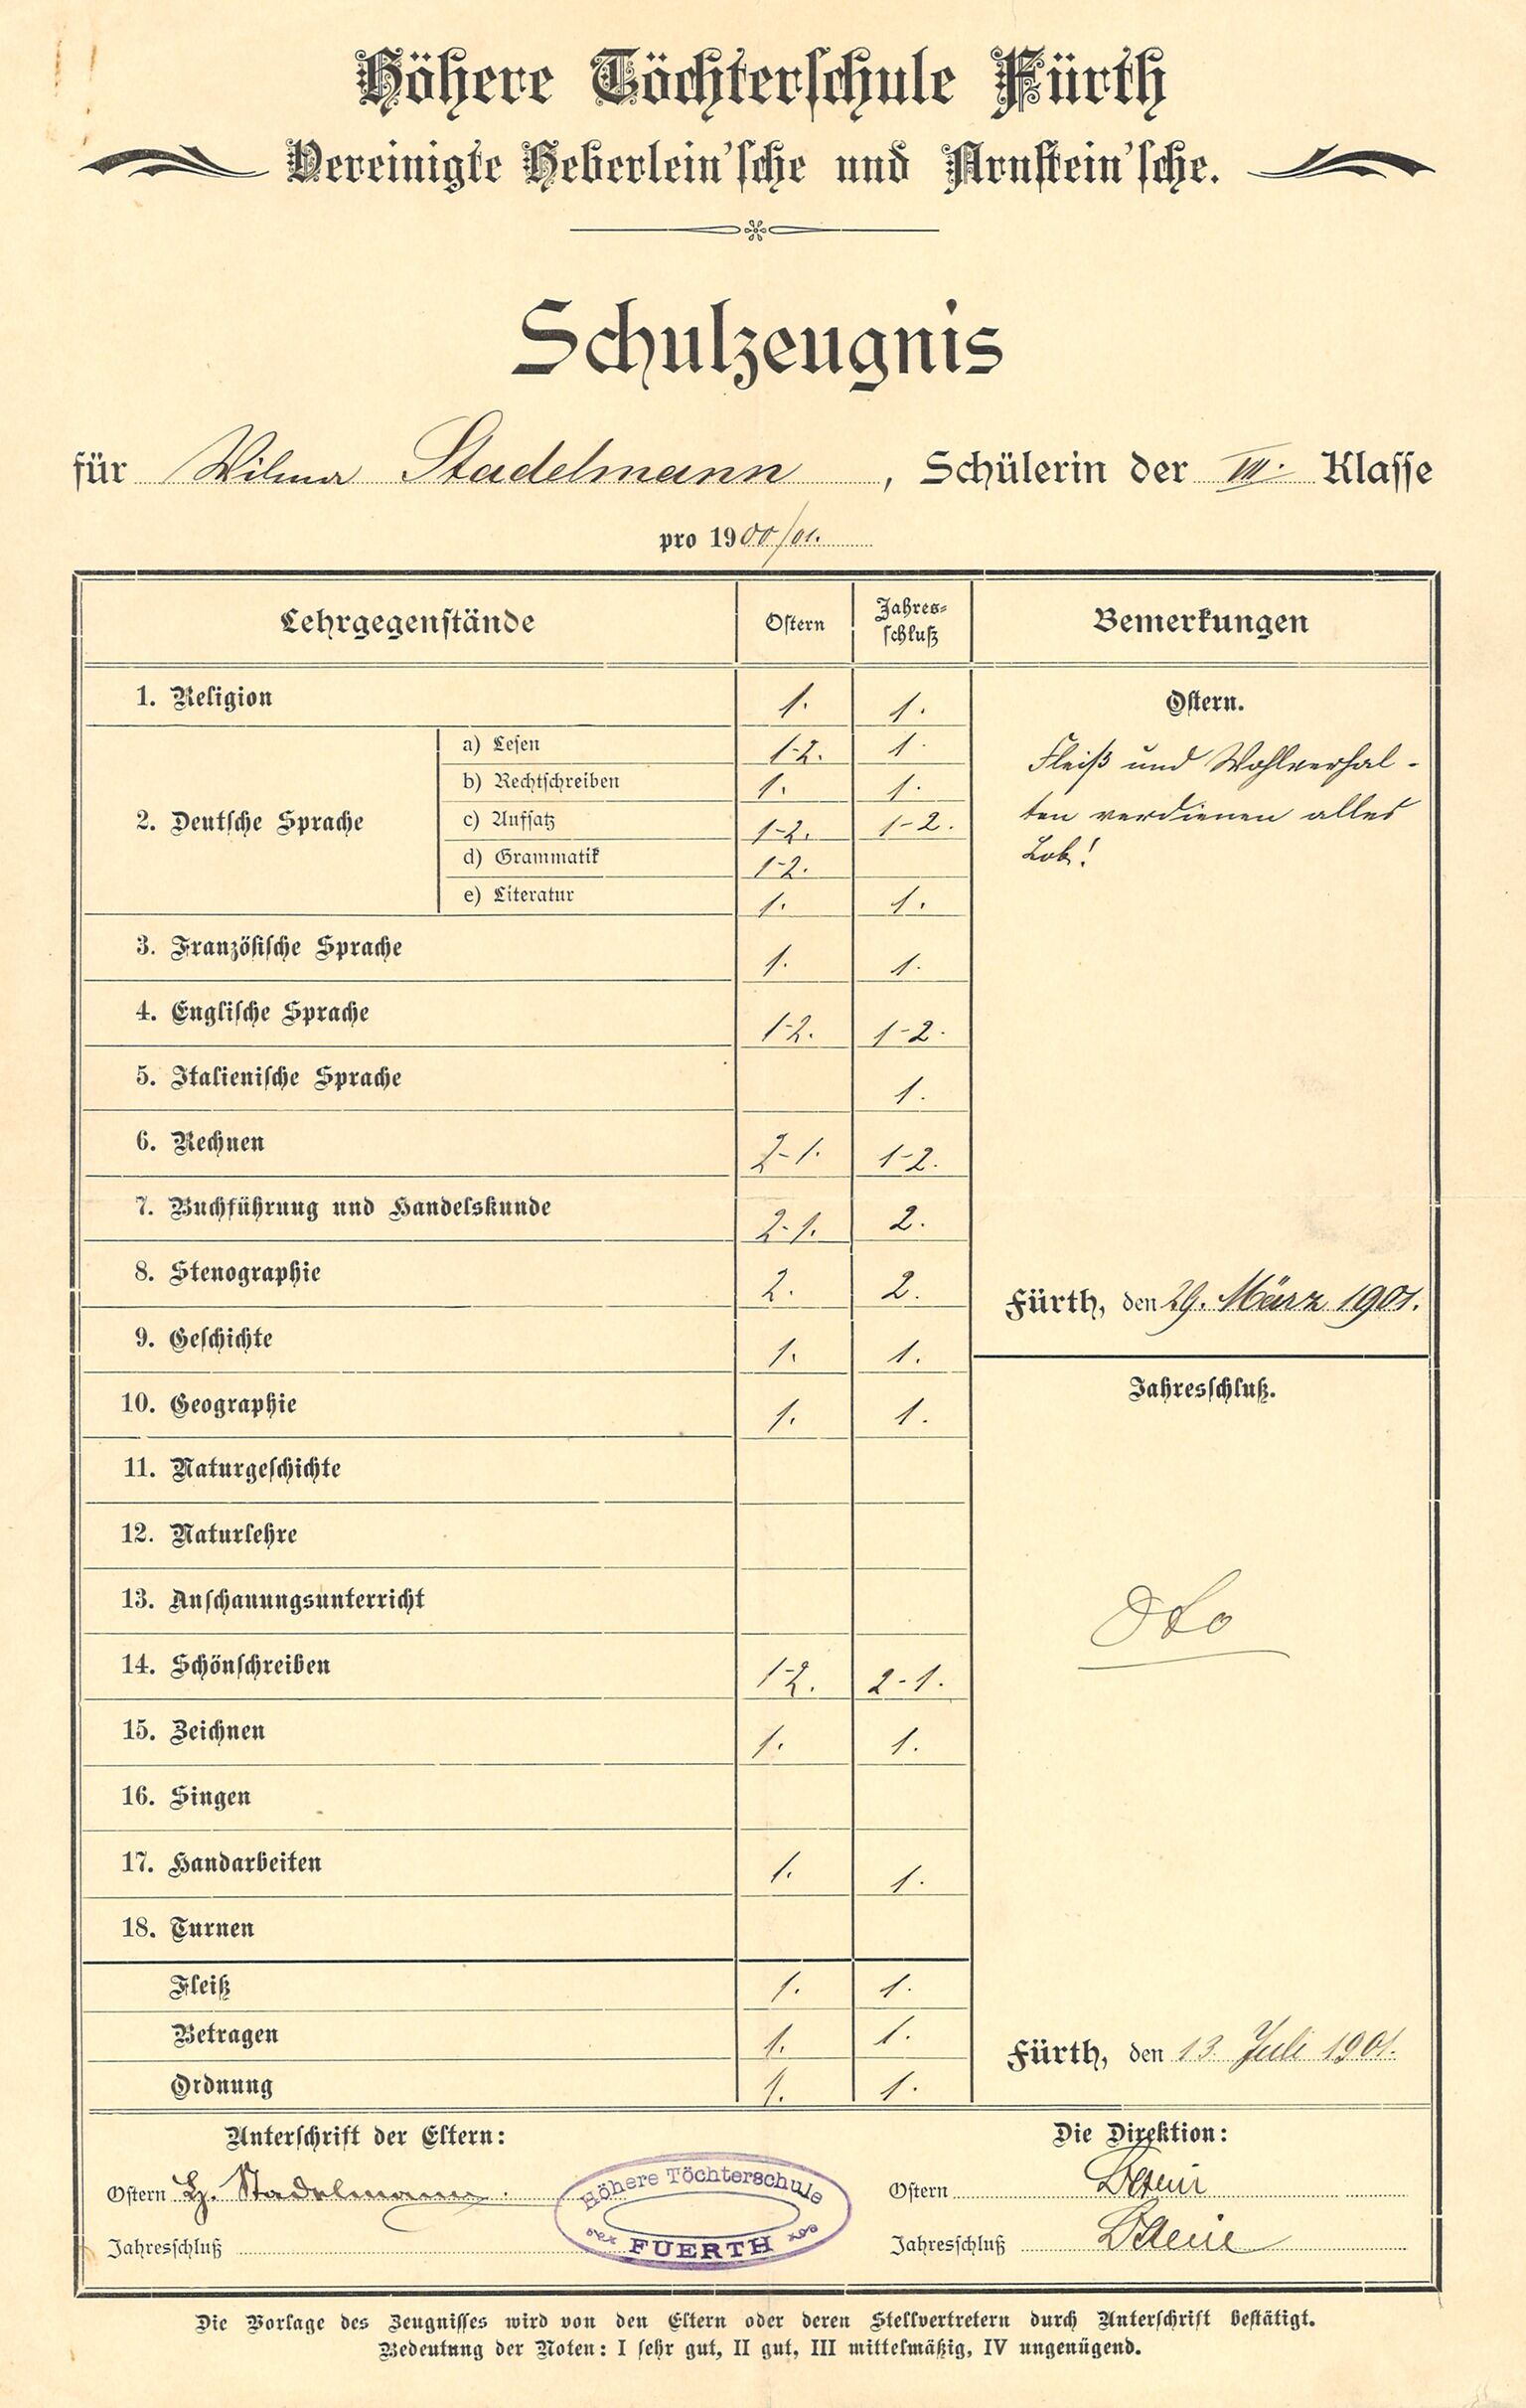 Höhere Töchterschule Fürth
Vereinigte Heberlein'sche und Arnstein'sche.
Schulzeugnis
für Wilma Stadelmann, Schülerin der VII. Klasse
pro 1900/01.
Lehrgegenstände Ostern Jahres-schluß Bemerkungen
1. Religion 1. 1.
2. Deutsche Sprache
a) Lesen 1-2. 1.
b) Rechtschreiben 1. 1.
c) Aufsatz 1-2. 1-2.
d) Grammatik 1-2.
e) Literatur 1. 1.
3. Französische Sprache 1. 1.
4. Englische Sprache 1-2. 1-2.
5. Italienische Sprache 1.
6. Rechnen 2-1. 1-2.
7. Buchführung und Handelskunde 2-1. 2.
8. Stenographie 2. 2.
9. Geschichte 1. 1.
10. Geographie 1. 1.
11. Naturgeschichte
12. Naturlehre
13. Anschauungsunterricht
14. Schönschreiben 1-2. 2-1.
15. Zeichnen 1. 1.
16. Singen
17. Handarbeiten 1. 1.
18. Turnen
Fleiß 1. 1.
Betragen 1. 1.
Ordnung 1. 1.
Ostern.
Fleiß und Wohlverhal-
ten verdienen alles
Lob!
Fürth, den 29. März 1901.
Jahresschluß.
dto
Fürth, den 13. Juli 1901.
Unterschrift der Eltern:
Ostern H. Stadelmann.
Jahresschluß
Höhere Töchterschule
FUERTH
Die Direktion:
Ostern
Jahresschluß
Die Vorlage des Zeugnisses wird von den Eltern oder deren Stellvertretern durch Unterschrift bestätigt.
Bedeutung der Noten: I sehr gut, II gut, III mittelmäßig, IV ungenügend.